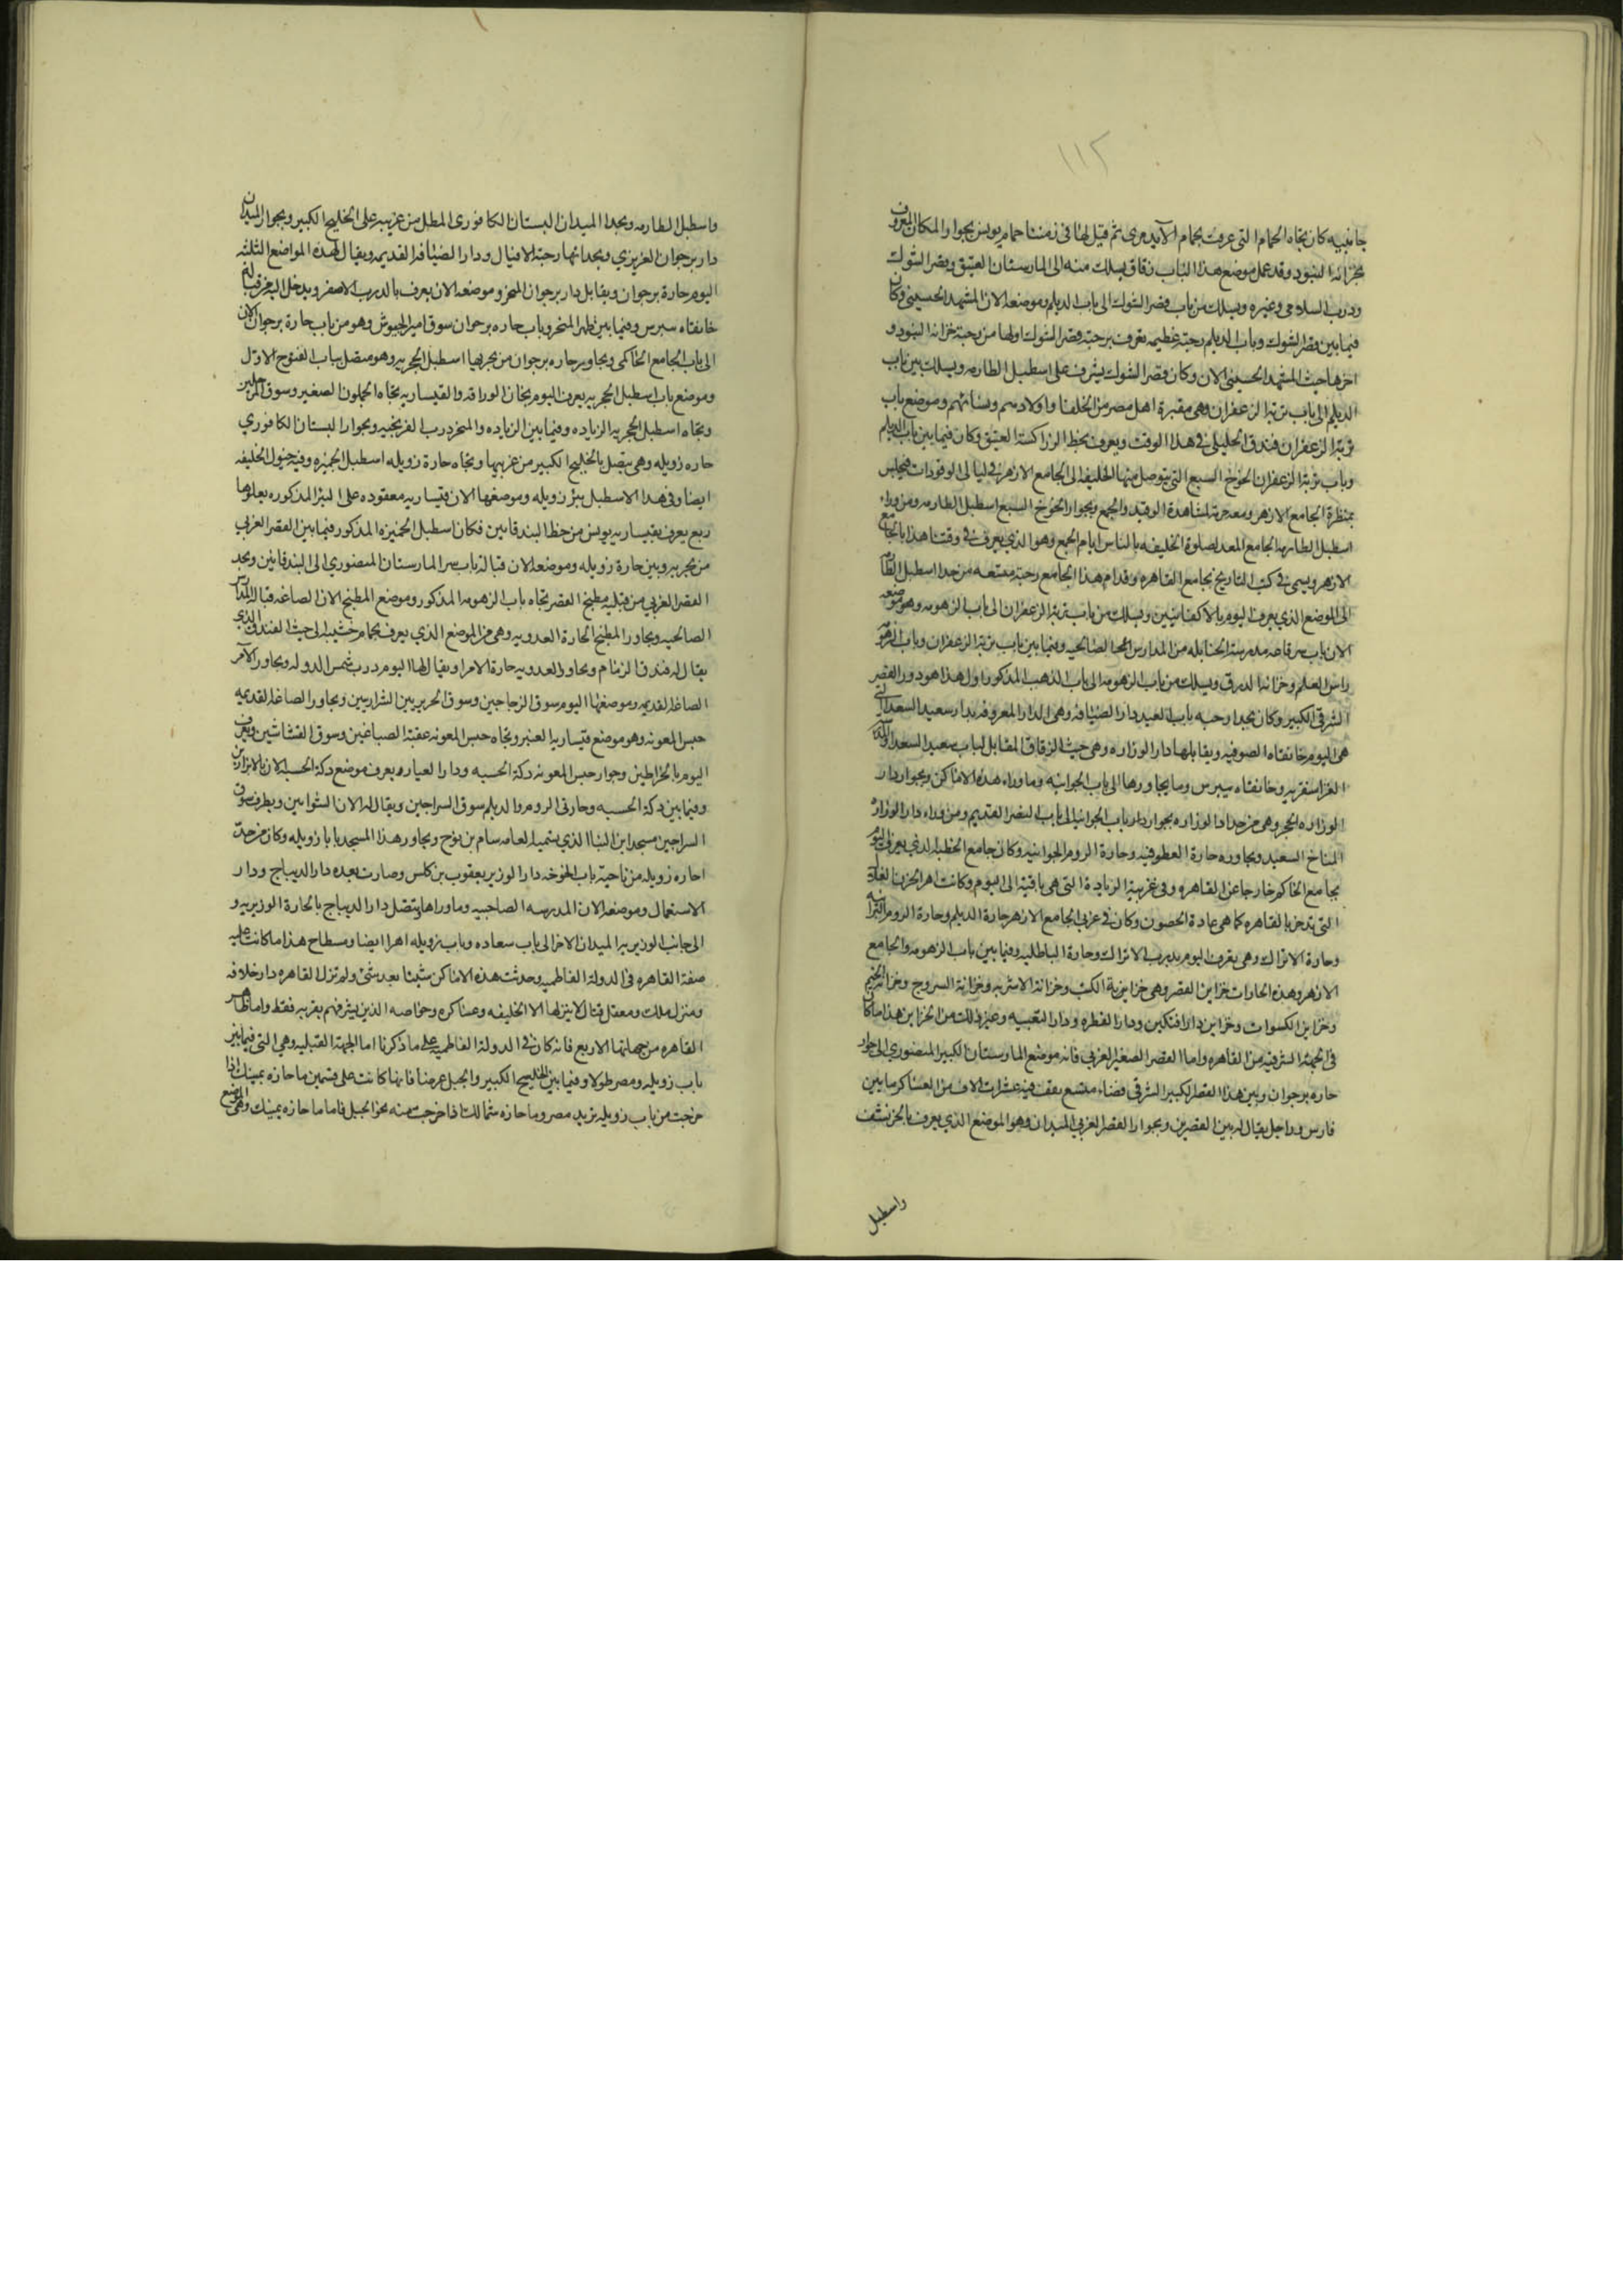 ١١٢
جانبيه كان تجاه الحمام التى عرفت بحمام الآيدمرى ثم قيل لها فى زمننا حمام يونس بجوار المكان المعروف
بخزانة البنود وقد عمل موضع هذا الباب زقاق يسلك منه الى المارستان العتيق وقصر الشوك
ودرب السلامى وغيره ويسلك من باب قصر الشوك الى باب الديلم وموضعه الان المشهد الحسينى وكان
فيما بين قصر الشوك وباب الديلم رحبة عظيمه تعرف برحبة قصر الشوك اولها من رحبة خزانة البنود و
اخرها حيث المشهد الحسينى الان وكان قصر الشوك يشرف على اسطبل الطارمه ويسلك من باب
الديلم الى باب تربة الزعفران وهى مقبرة اهل مصر من الخلفا واولادهم ونسائهم وموضع باب
تربة الزعفران فندق الخليلى فى هذا الوقت ويعرف بخط الزراكشة العتيق وكان فيما بين باب الديلم
وباب تربة الزعفران الخوخ السبع التى يتوصل منها الخليفة الى الجامع الازهر فى ليالى الوقودات فيجلس
بمنظرة الجامع الازهر ومعه حرمه لمشاهدة الوقيد والجمع وبجوار الخوخ السبع اسطبل الطارمه ومن وراء
اسطبل الطارمه الجامع المعد لصلوة الخليفه بالناس ايام الجمع وهو الذي يعرف فى وقتنا هذا بالجامع
الازهر ويسمى فى كتب التاريخ بجامع القاهره وقدام هذا الجامع رحبة متسعه من حد اسطبل الطارمه
الى الموضع الذي يعرف اليوم بالاكفانيين ويسلك من باب تربة الزعفران الى باب الزهومه وموضعه
الان باب سر قاعه مدرسة الحنابله من المدارس الصالحيه وفيما بين باب تربة الزعفران وباب الزهومه
راس العلم وخزانة الدرق ويسلك من باب الزهومه الى باب الذهب المذكور اول هذا هو دور القصر
الشرقى الكبير وكان بحدا رحبه باب العيد دار الضيافه وهى الدار المعروفه بدار سعيد السعدا التى
هى اليوم خانقاه الصوفيه ويقابلها دار الوزاره وهى حيث الزقاق المقابل لباب سعيد السعدا والمدرسه
القراسنقريه وخانقاه بيبرس وما يجاورها الى باب الجوانيه وما وراء هذه الاماكن وبجوار دار
الوزاره الحجر وهى من حد دار الوزاره بجوار دار باب الجوانيه الى باب النصر القديم ومن وراء دار الوزاره
المناخ السعيد ويجاوره حارة العطوفيه وحارة الروم الجوانيه وكان جامع الخطبه الذي يعرف اليوم
بجامع الحاكم خارجا عن القاهره وفى غربيه الزيادة التى هى باقية الى اليوم وكانت اهرا لخزن الغلة
التى تدخر بالقاهره كما هى عادة الحصون وكان فى غربى الجامع الازهر حارة الديلم وحارة الروم البرانيه
وحارة الاتراك وهى تعرف اليوم بدرب الاتراك وحارة الباطليه وفيما بين باب الزهومه والجامع
الازهر وهذه الحارات خزاين القصر وهى خزاينة الكتب وخزانة الاشربه وخزانة السروج وخزانة الخيم
وخزاين الكسوات وخزاين دار افتكين ودار الفطره ودار التعبيه وغير ذلك من الخزاين هذا ما كان
فى الجهة الشرقيه من القاهره واما القصر الصغير الغربى فانه موضع المارستان الكبير المنصوري الى جوار
حاره برجوان وبين هذا القصر الكبير الشرقى فضاء متسع يقف فيه عشرات الاف من العساكر ما بين
فارس وراجل يقال له بين القصرين وبجوار القصر الغربي الميدان وهو الموضع الذي يعرف بالخرنشف
واسطبل
واسطبل الطارمه وبحدا الميدان البستان الكافورى المطل من غربيه على الخليج الكبير وبجوار الميدان
دار برجوان العزيزي وبحدائها رحبة الافيال ودار الضيافه القديمه ويقال لهذه المواضع الثلثه
اليوم حارة برجوان ويقابل دار برجوان المنحر وموضعه الان يعرف بالدرب الاصفر ويدخل اليه من قبالة
خانقاه بيبرس وفيما بين ظهر المنحر وباب حاره برجوان سوق امير الجيوش وهو من باب حارة برجوان الان
الى باب الجامع الحاكمى ويجاور حاره برجوان من بحريها اسطبل الحجريه وهو متصل بباب الفتوح الاول
وموضع باب اسطبل الحجريه يعرف اليوم بخان الوراقه والقيساريه تجاه الجملون الصغير وسوق المرحلين
وتجاه اسطبل الحجريه الزياده وفيما بين الزياده والمنحر درب الفرنجيه وبجوار البستان الكافوري
حاره زويله وهى يتصل بالخليج الكبير من غربيها وتجاه حارة زويله اسطبل الجميزه وفيه خيول الخليفه
ايضا وفى هذا الاسطبل بئر زويله وموضعها الان قيساريه معقوده على البئر المذكوره يعلوها
ربع يعرف بقيساريه يونس من خط البندقانيين فكان اسطبل الجميزه المذكور فيما بين القصر الغربي
من بحريه وبين حارة زويله وموضعه الان قبالة باب سر المارستان المنصوري الى البندقانيين وبحد
القصر الغربي من قبليه مطبخ القصر تجاه باب الزهومه المذكور وموضع المطبخ الان الصاغه قبالة المدارس
الصالحيه ويجاور المطبخ الحارة العدويه وهى من الموضع الذي يعرف بحمام خشيبه الى حيث الفندق الذي
يقال له فندق الزمام ويجاور العدويه حارة الامرا ويقال لها اليوم درب شمس الدوله ويجاور الامرا
الصاغه القديمه وموضعها اليوم سوق الزجاجين وسوق الحريريين الشراربيين ويجاور الصاغه القديمه
حبس المعونه وهو موضع قيساريه العنبر وتجاه حبس المعونه عقبة الصباغين وسوق القشاشين ويعرف
اليوم بالخراطين وجوار حبس المعونه دكة الحسبه ودار العيار ويعرف موضع دكة الحسبه الان بالابزاريين
وفيما بين دكة الحسبه وحارتى الروم والديلم سوق السراجين ويقال له الان الشوايين وبطرف سوق
السراجين مسجد ابن البنا الذي يسميه العامه سام بن نوح ويجاور هذا المسجد بابا زويله وكان من حدت
احاره زويله من ناحية باب الخوخه دار الوزير يعقوب بن كلس وصارت بعده دار الديباج ودار
الاستعمال وموضعه الان المدرسه الصاحبيه وما وراها ويتصل دار الديباج بالحارة الوزيريه و
الى جانب الوزيريه الميدان الاخر الى باب سعاده وباب زويله اهرا ايضا وسطاح هذا ما كانت عليه
صفة القاهره فى الدولة الفاطميه وحدثت هذه الاماكن شيئا بعد شئ ولم تزل القاهره دار خلافه
ومنزل ملك ومعقل قتال لا ينزلها الا الخليفه وعساكره وخواصه الذين يشرفهم بقربه فقط واما ظاهر
القاهره من جهاتها الاربع فانه كان فى الدولة الفاطميه على ما ذكرنا اما الجهة القبليه وهى التى فيما بين
باب زويله ومصر طولا وفيما بين الخليج الكبير والجبل عرضا فانها كانت على قسمين ما حازه يمينك اذا
خرجت من باب زويله تريد مصر وما حازه شمالك اذا خرجت منه نحو الجبل فاما ما حازه يمينك وهى الموضع